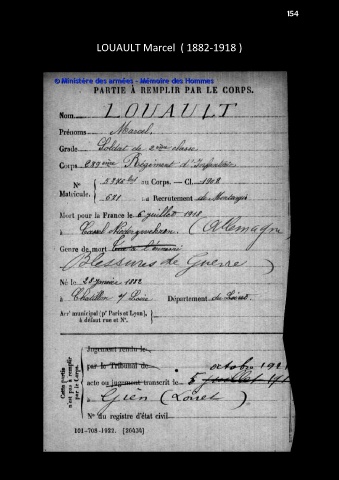 154
LOUAULT Marcel ( 1882-1918 )
© Ministère des armées - Mémoire des Hommes
PARTIE À REMPLIR PAR LE CORPS.
Nom LOUAULT
Prénoms Marcel,
Grade Soldat de 2ème classe
Corps 289ème Régiment d'Infanterie
N° 5376 bis au Corps. — Cl. 1902
Matricule. 681 au Recrutement de Montargis
Mort pour la France le 6 juillet 1918
à Cassel (Allemagne
Genre de mort
Blessures de Guerre )
Né le 28 Janvier 1882
à Châtillon s/ Loire Département du Loiret
Arrt municipal (pr Paris et Lyon),
à défaut rue et N°.
Cette partie
n'est pas à remplir
par le Corps.
Jugement rendu le
par le Tribunal de
octobre
acte ou jugement transcrit le 5 juillet
à Gien (Loiret )
N° du registre d'état civil
101-708-1922. [26434]